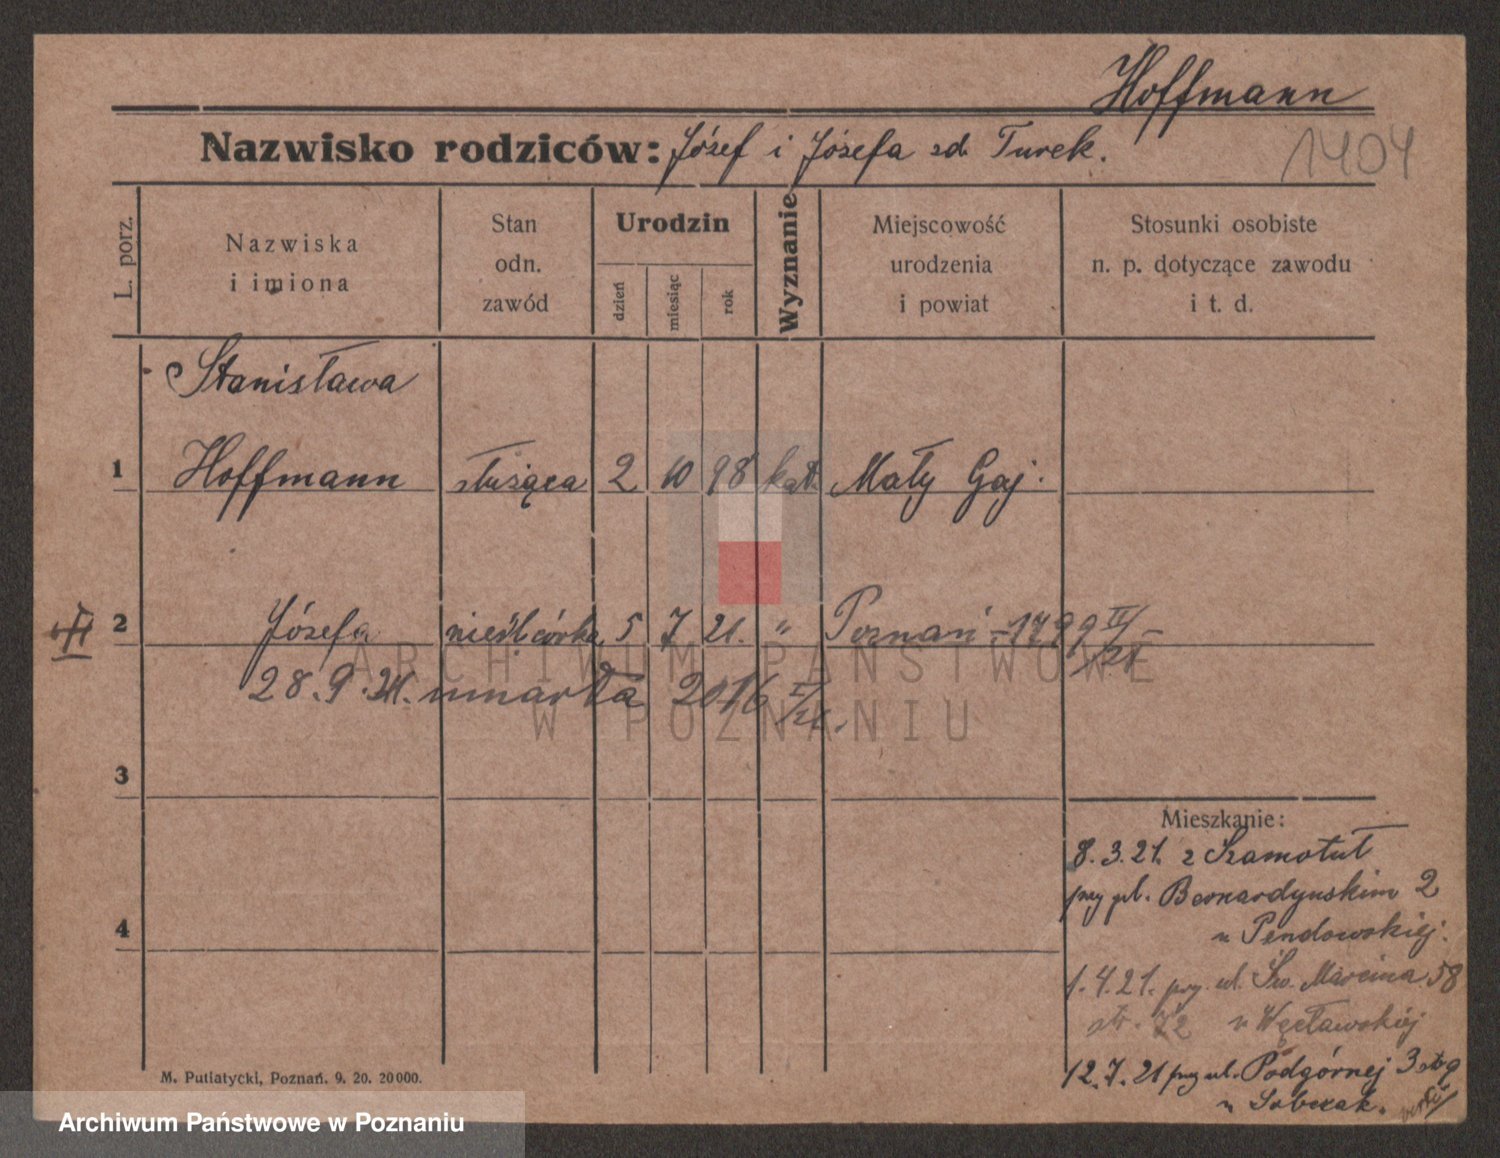 Hoffmann
Nazwisko rodziców: Józef i Józefa zd. Turek.
1404
L. porz.
Nazwiska
i imiona
Stan
odn.
zawód
Urodzin
dzień
miesiąc
rok
Wyznanie
Miejscowość
urodzenia
i powiat
Stosunki osobiste
n. p. dotyczące zawodu
i t. d.
Stanisława
1 Hoffmann służąca 2 10 98 kat. Mały Gaj.
2 Józefa nieśl córka 5 7 21. " Poznań
28. 9. 21. umarła
ARCHIWUM PAŃSTWOWE
W POZNANIU
3
4
Mieszkanie:
8. 3. 21. z Szamotuł
przy pl. Bernardyńskim 2
u Pendowskiej.
1. 4. 21. przy ul. Św. Marcina 58
u Węcławskiej
12. 7. 21 przy ul. Podgórnej 3
u Sobczak.
M. Putiatycki, Poznań. 9. 20. 20000.
Archiwum Państwowe w Poznaniu